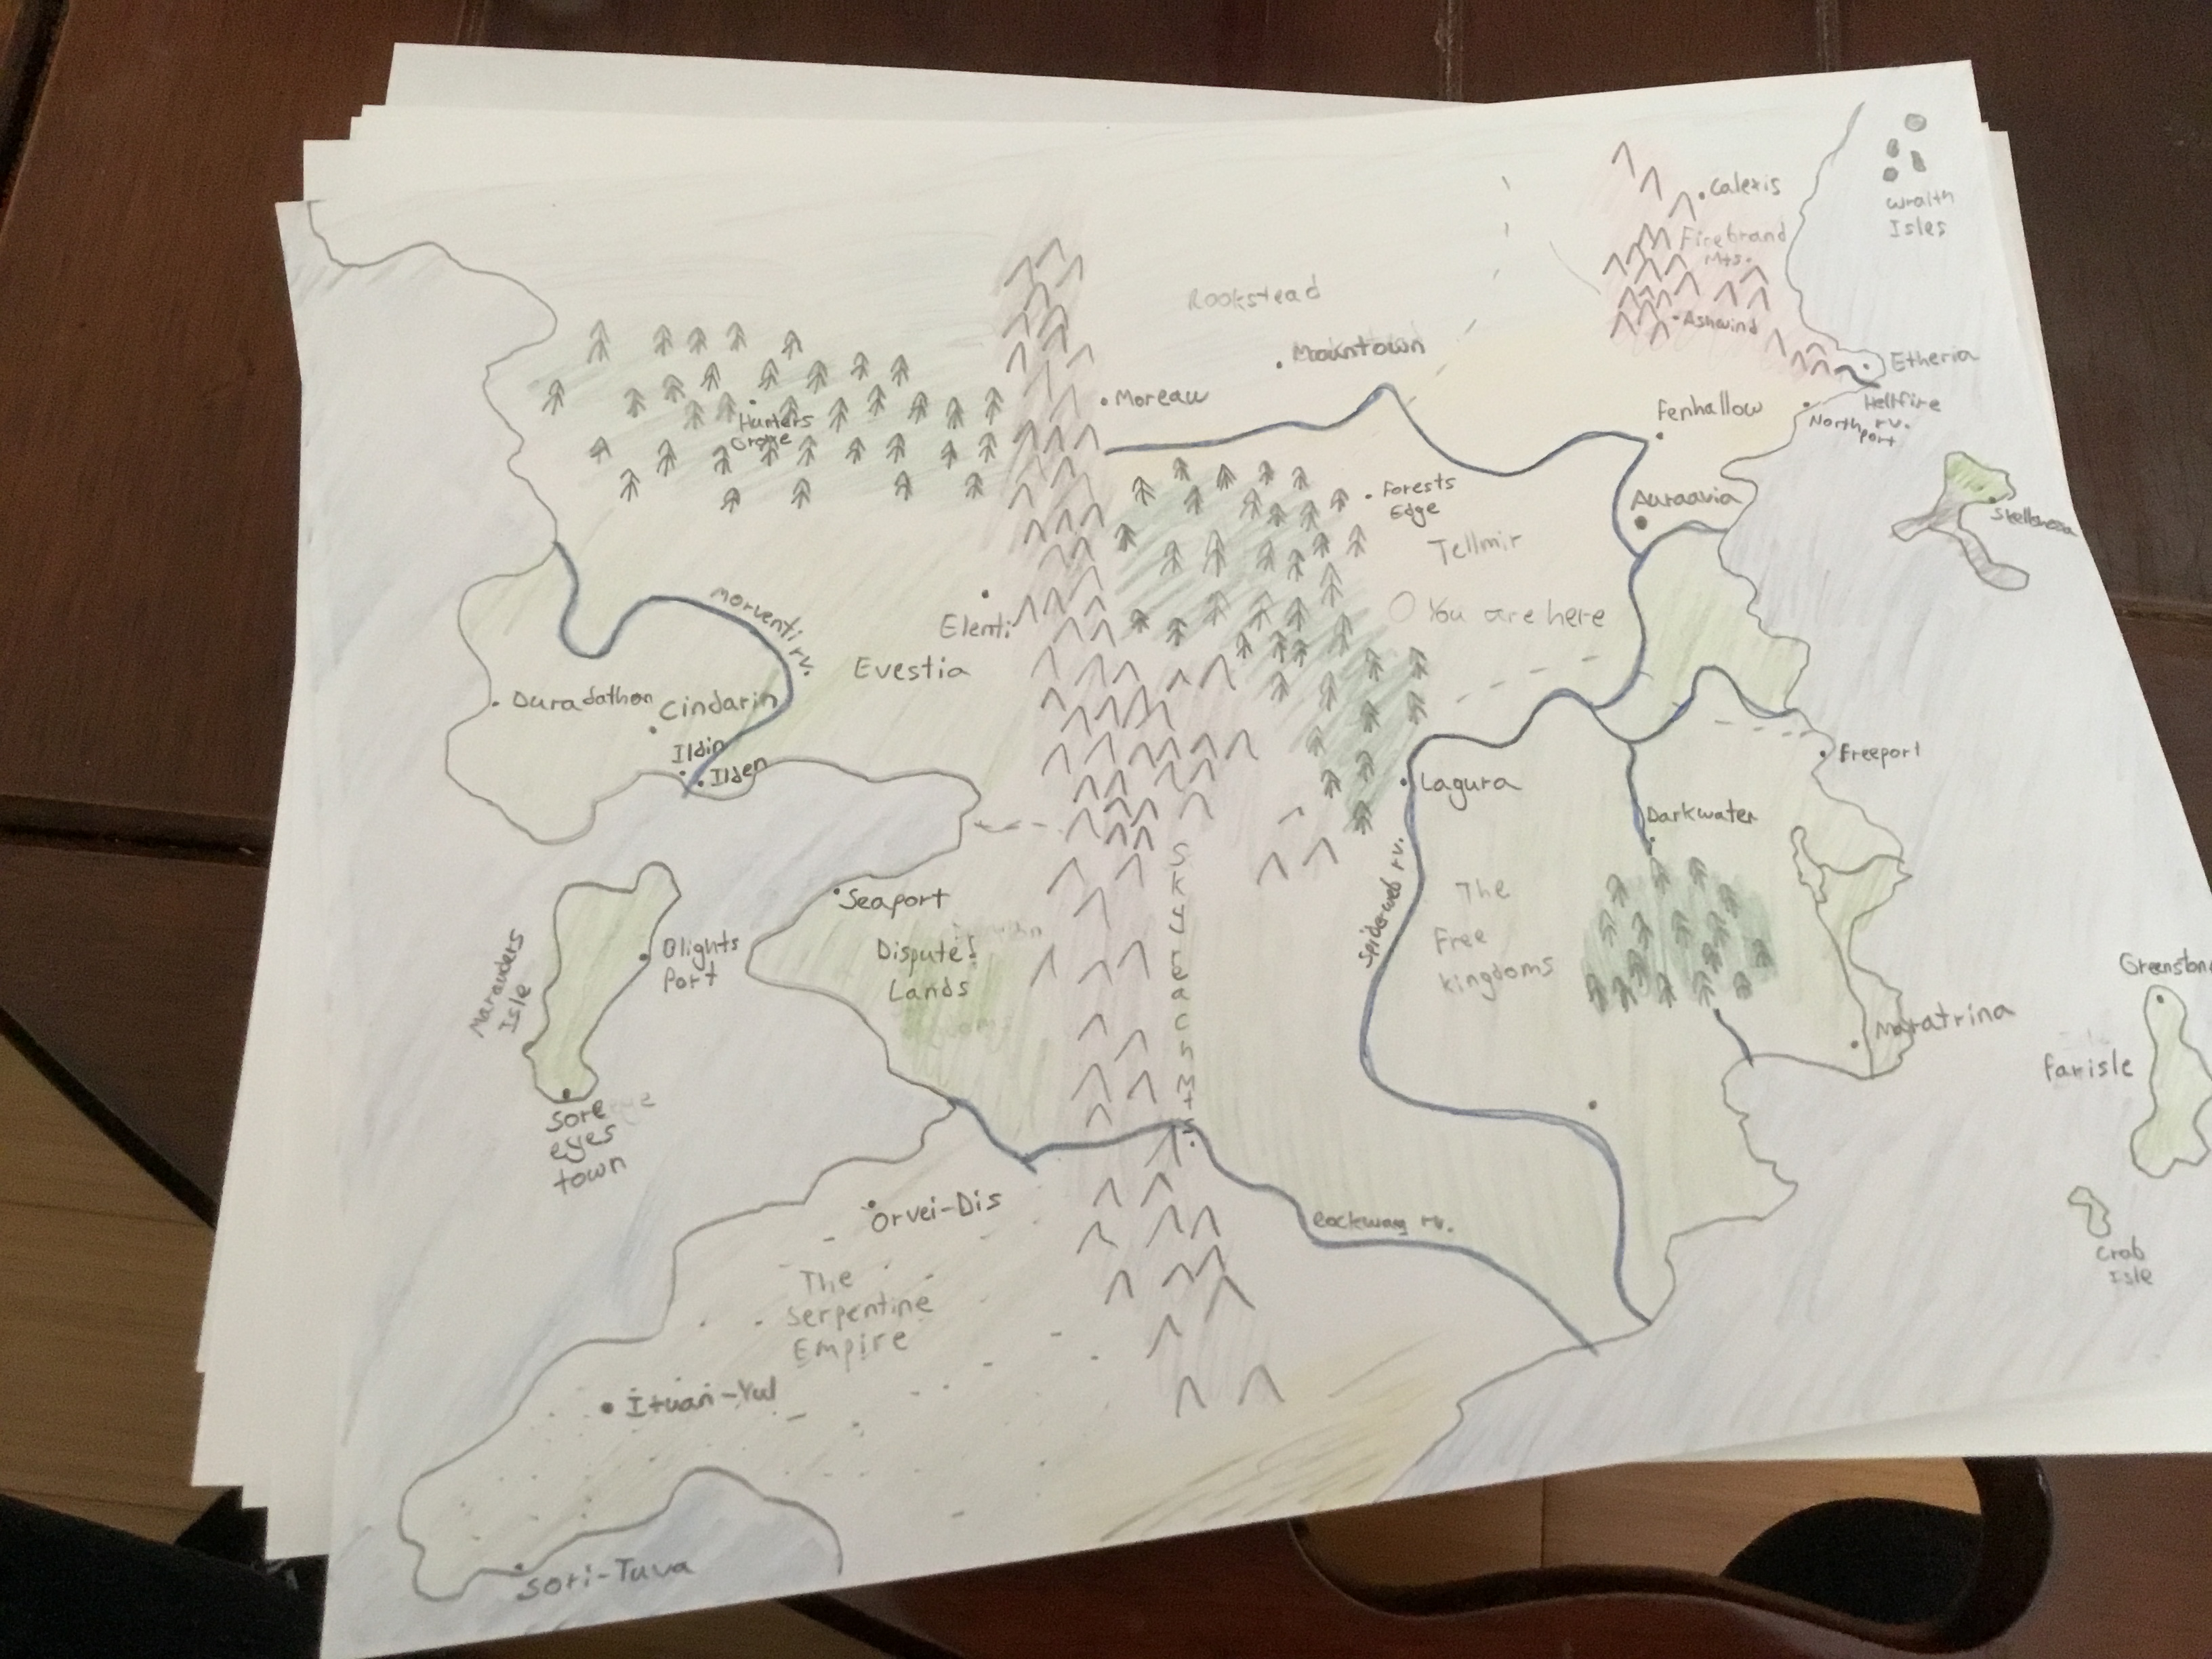 Calexis
Wraith
Isles
Firebrand
Mts.
Rookstead
Ashwind
Moontown
Etheria
Moreau
Hellfire
rv.
Fenhallow
North
port
Hunters
Grove
Forests
Edge
Auraavia
Tellmir
You are here
Morventi rv.
Elenti
Evestia
Duradathon
Cindarin
Ildin
Ilden
Freeport
Lagura
Darkwater
Skyreach Mts.
Seaport
Spiderweb rv.
The
Free
Kingdoms
Marauders
Isle
Blights
Port
Disputed
Lands
Maratrina
Farisle
Sore
eyes
town
Orvei-Dis
Rockway rv.
Crab
Isle
The
Serpentine
Empire
Ituan-Yul
Sori-Tuva